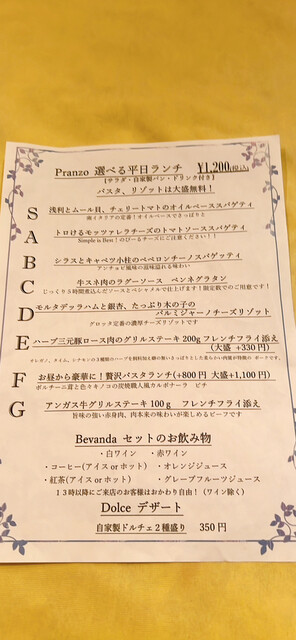 Pranzo 選べる平日ランチ ¥1,200(税込)
【サラダ・自家製パン・ドリンク付き】
パスタ、リゾットは大盛無料！
S 浅利とムール貝、チェリートマトのオイルベーススパゲティ
南イタリアの定番！オイルベースでさっぱりと
A トロけるモッツァレラチーズのトマトソーススパゲティ
Simple is Best！のびーるチーズにご注意ください！！
B シラスとキャベツ小柱のペペロンチーノスパゲティ
アンチョビ風味の滋味溢れる味わい
C 牛スネ肉のラグーソース ペンネグラタン
じっくり５時間煮込んだソースとベシャメルで仕上げます！限定数でのご用意です！
D モルタデッラハムと銀杏、たっぷり木の子の
パルミジャーノチーズリゾット
グロッタ定番の濃厚チーズリゾットです
E ハーブ三元豚ロース肉のグリルステーキ 200g フレンチフライ添え
(大盛 +330 円)
オレガノ、タイム、シナモンの３種類のハーブを飼料に加え
F お昼から豪華に！贅沢パスタランチ(+800 円 大盛+1,100 円)
ポルチーニ茸と色々キノコの炭焼職人風カルボナーラ ピチ
G アンガス牛グリルステーキ 100ｇ フレンチフライ添え
旨味の強い赤身肉、肉本来の味わいが楽しめるビーフです
Bevanda セットのお飲み物
・白ワイン ・赤ワイン
・コーヒー(アイス or ホット) ・オレンジジュース
・紅茶(アイス or ホット) ・グレープフルーツジュース
１３時以降にご来店のお客様はおかわり自由！(ワイン除く)
Dolce デザート
自家製ドルチェ２種盛り 350 円